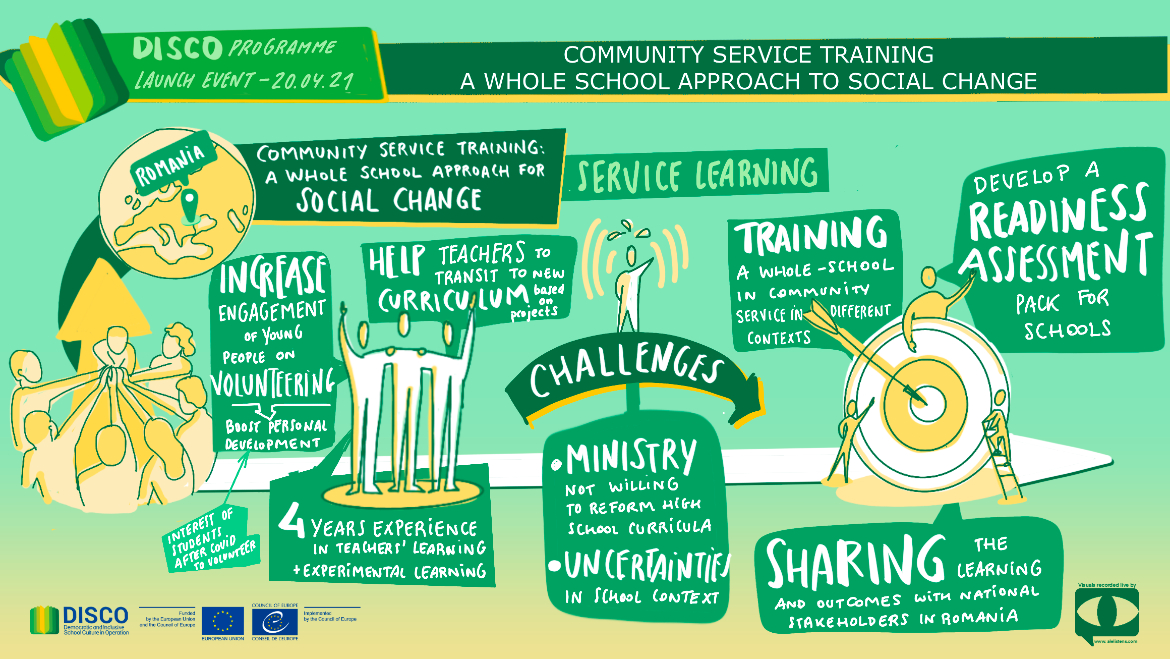 DISCO PROGRAMME
LAUNCH EVENT - 20.04.21
COMMUNITY SERVICE TRAINING
A WHOLE SCHOOL APPROACH TO SOCIAL CHANGE
ROMANIA
COMMUNITY SERVICE TRAINING:
A WHOLE SCHOOL APPROACH FOR
SOCIAL CHANGE
SERVICE LEARNING
INCREASE
ENGAGEMENT
OF YOUNG
PEOPLE ON
VOLUNTEERING
BOOST PERSONAL
DEVELOPMENT
INTEREST OF
STUDENTS
AFTER COVID
TO VOLUNTEER
HELP TEACHERS TO
TRANSIT TO NEW
CURRICULUM based
on
projects
4 YEARS EXPERIENCE
IN TEACHERS' LEARNING
+ EXPERIMENTAL LEARNING
CHALLENGES
• MINISTRY
NOT WILLING
TO REFORM HIGH
SCHOOL CURRICULA
• UNCERTAINTIES
IN SCHOOL CONTEXT
TRAINING
A WHOLE-SCHOOL
IN COMMUNITY
SERVICE IN DIFFERENT
CONTEXTS
DEVELOP A
READINESS
ASSESSMENT
PACK FOR
SCHOOLS
SHARING THE
LEARNING
AND OUTCOMES WITH NATIONAL
STAKEHOLDERS IN ROMANIA
DISCO
Democratic and Inclusive
School Culture in Operation
Funded
by the European Union
and the Council of Europe
EUROPEAN UNION
COUNCIL OF EUROPE
CONSEIL DE L'EUROPE
Implemented
by the Council of Europe
Visuals recorded live by